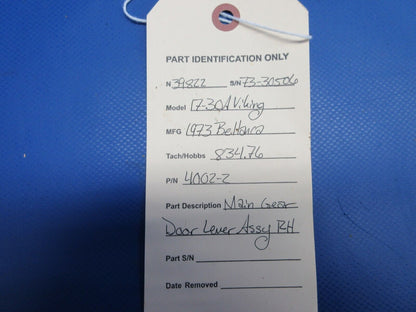 PART IDENTIFICATION ONLY
N 39822 S/N 73-30506
Model 17-30A Viking
MFG 1973 Bellanca
Tach/Hobbs 834.76
P/N 4002-2
Part Description Main Gear
Door Lever Assy RH
Part S/N
Date Removed